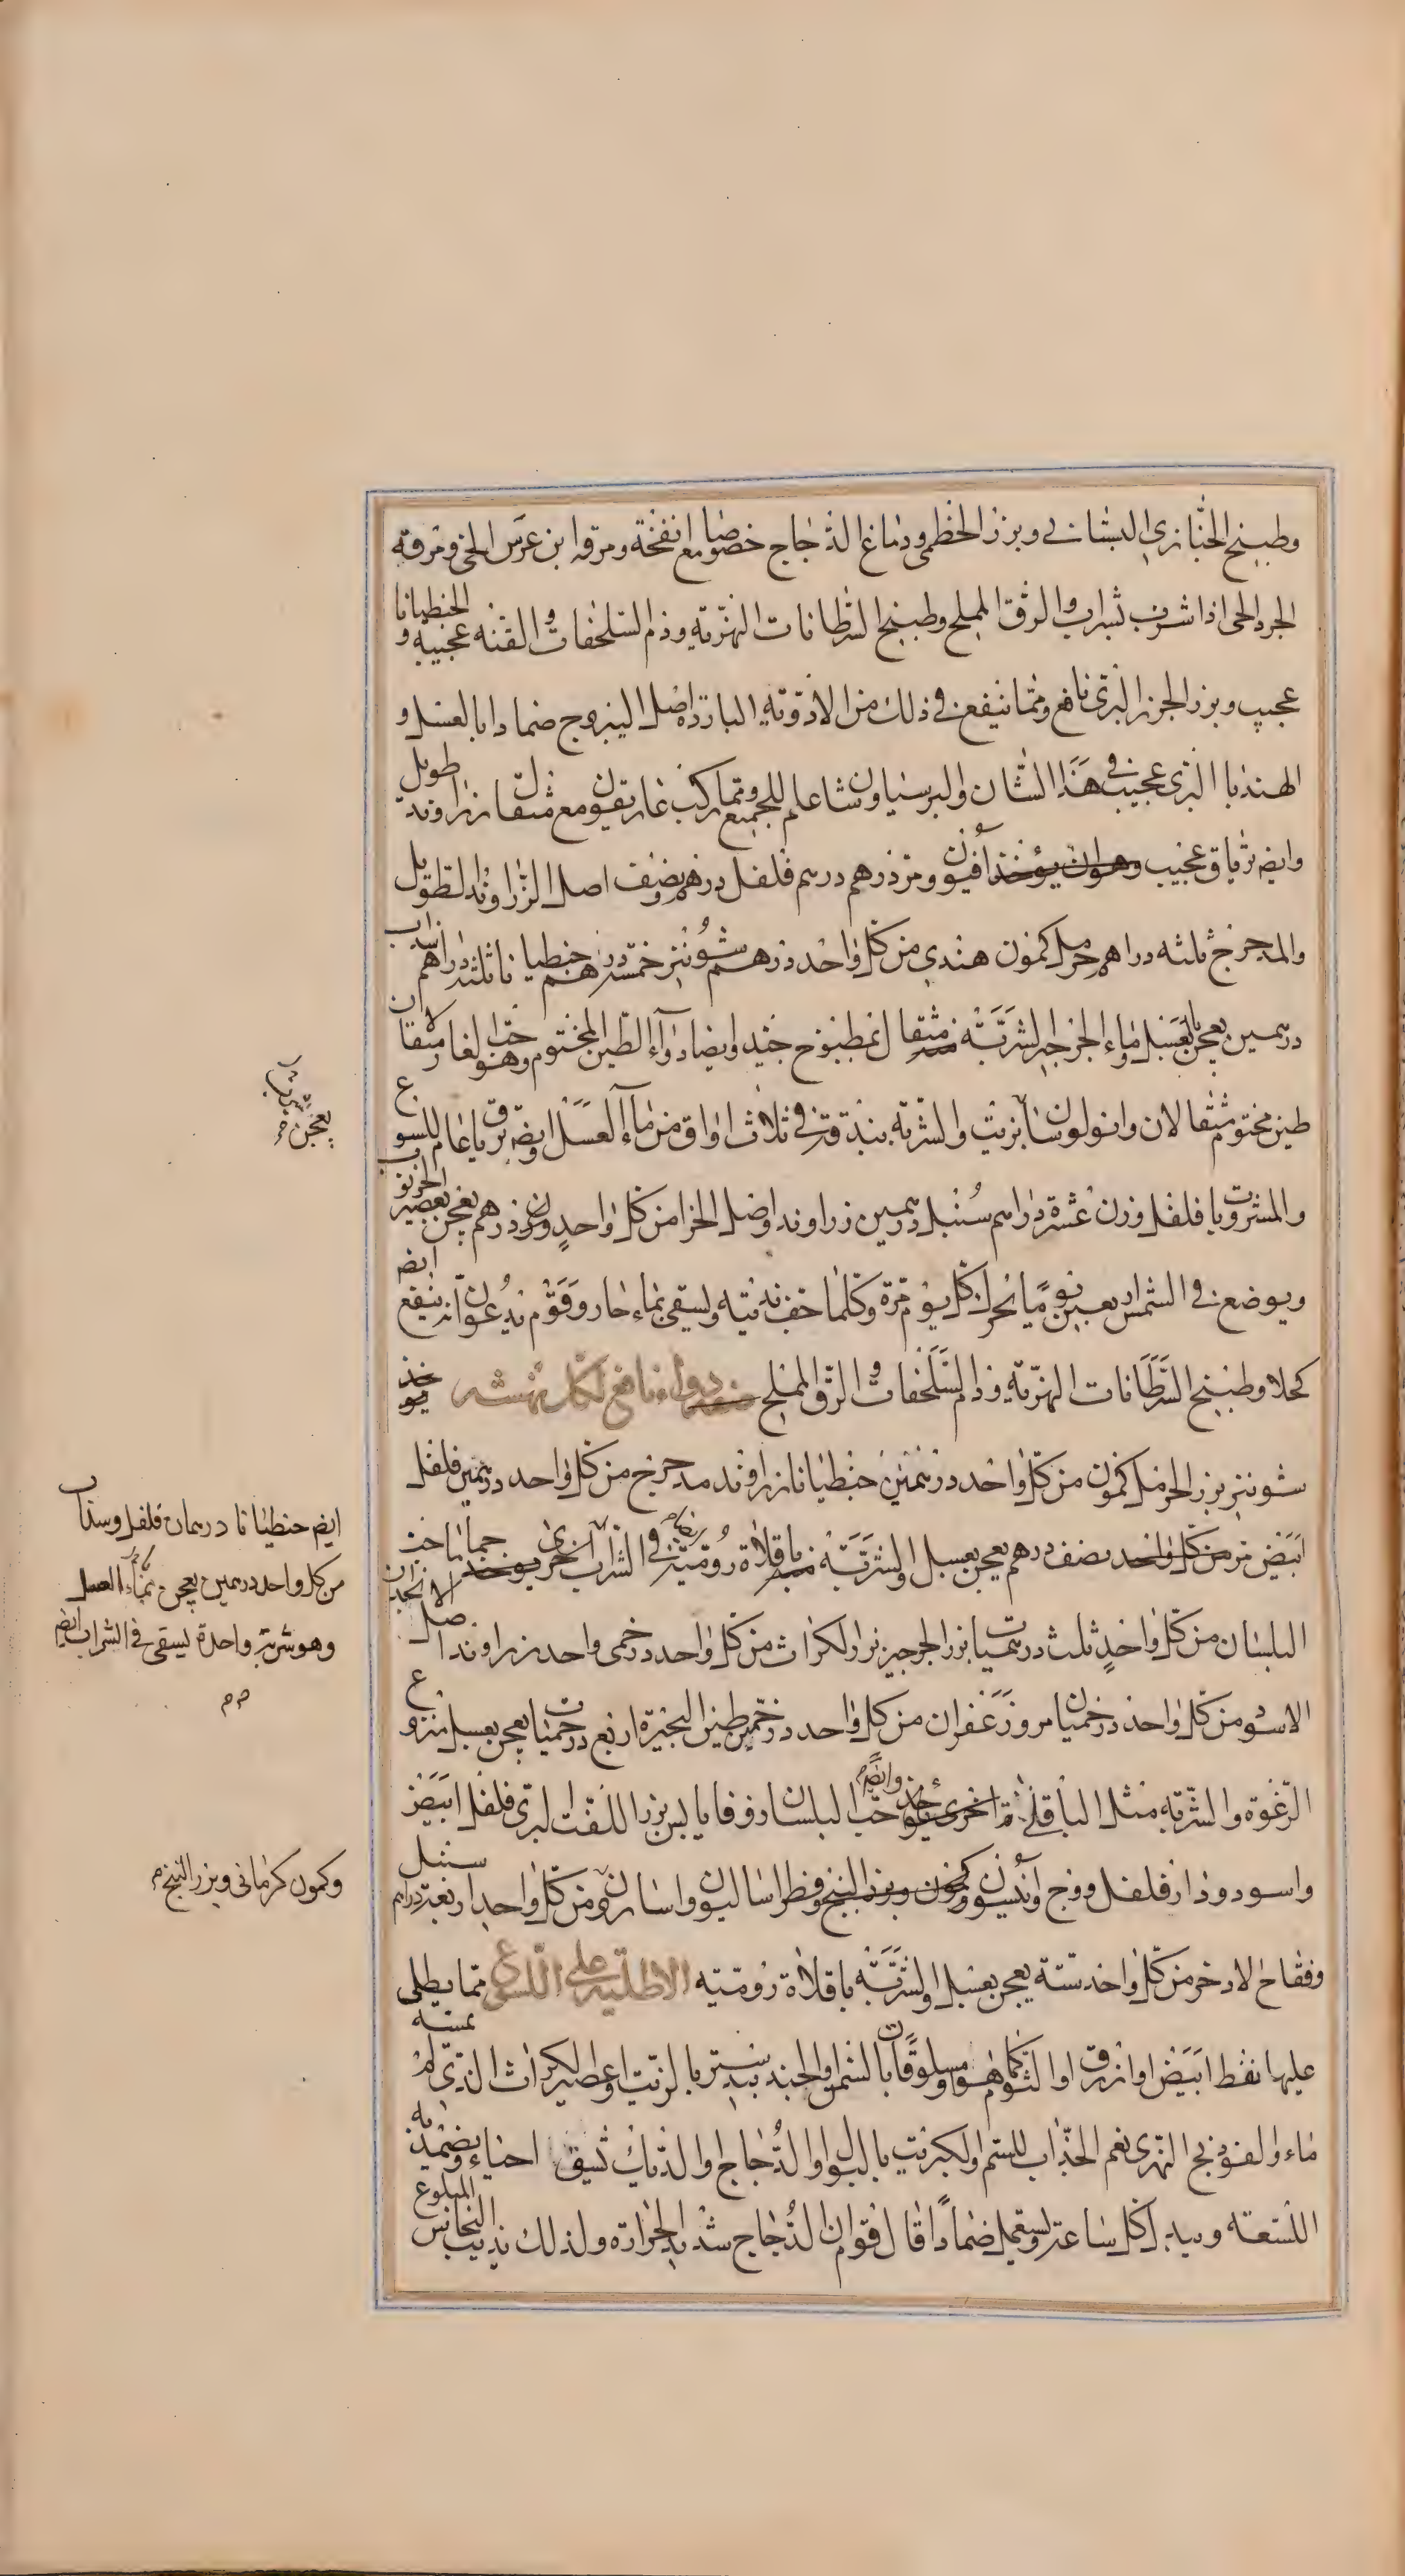 وطبيخ الخبازى البستانى وبزر الخطمى ودماغ الدجاج خصوصا مع انفخة ومرقة ابن عرس الحى ومرقة
الجرد الحى اذا شرب بشراب والرق المملح وطبيخ السرطانات النهرية ودم السلحفات والقنه عجيبة و الجنطيانا
عجيب وبزر الجزر البرى نافع ومما ينفع فى ذلك من الادوية الباردة اصل اليبروج ضمادا بالعسل و
الهندبا البرى عجيب فى هذا الشان والبرسياوشان عام للجميع ومما ركب غاريقون مع مثقال زراوند طويل
وايضه ترياق عجيب وهو ان يؤخذ افيون ومر درهم درهم فلفل درهم ونصف اصل الزراوند الطويل
والمدحرج ثلثه دراهم حرمل كمون هندى من كل واحد درهم شونيز خمسه دراهم جنطيانا ثلثه دراهم سذاب
درهمين يعجن بالعسل وماء الجرجير الشربة مثقال بمطبوخ جيد وايضا دواء الطين المختوم وهو حب الغار مثقالان
طين مختوم مثقالان وانولوسا بزيت والشربة بندقة فى ثلاث اواق من ماء العسل ايضه وترياق عام للسوع
والمشروبات فلفل وزن عشرة دراهم سنبل درهمين زراوند واصل الحزا من كل واحد وزن درهم يعجن بعصير الخرنوب
ويوضع فى الشمس اربعين يوما يحرك كل يوم مرة وكلما جف نديته ويسقى بماء حار وقوم يدعون انه ينفع ايضه
كحلا وطبيخ السرطانات النهرية ودم السلحفات والرق المملح دواء نافع لكل نهشه يوخذ
شونيز بزر الحرمل كمون من كل واحد درهمين جنطيانا زراوند مدحرج من كل واحد درهمين فلفل
ابيض مر من كل واحد نصف درهم يعجن بعسل والشربة باقلاة رومية فى الشراب اخرى يوخذ جمأما حب الانجدان
البلسان من كل واحد ثلث درهميات بزر الجرجير بزر الكراث من كل واحد درخمى واحد زراوند اصل
الاسود من كل واحد درخميان مر وزعفران من كل واحد درخمين طين البحيرة اربع درخميات يعجن بعسل منزوع
الرغوة والشربة مثل الباقلى اخرى يوخذ وايضا حب البلسان زوفا يابس بزر اللفت البرى فلفل ابيض
واسود ودار فلفل ووج وانيسون وكمون وبزر البنج وفطراساليون واسارون من كل واحد اربعة دراهم سنبل
وفقاح الاذخر من كل واحد ستة يعجن بعسل والشربة باقلاة رومية الاطلية على اللسوع مما يطلى
عليها نفط ابيض او ازرق او الثوم كما هو او مسلوقا بالسمن والجندبيدستر بالزيت او عصير الكراث الذى لم يمسه
ماء والفوذنج النهرى نعم الجذاب للسم والكبريت بالبول او الدجاج والديك تشق احياء ويضمد به
اللسعة ويبدل كل ساعة ويستعمل ضمادا قال قوم ان الدجاج شديد الحرارة ولذلك يذيب النحاس المبلوع
يعجن بشراب
ايضه جنطيانا درهمان فلفل وسذاب
من كل واحد درهمين يعجن بماء العسل
وهو شربة واحدة يسقى فى الشراب ايضه
وكمون كرمانى وبزر البنج